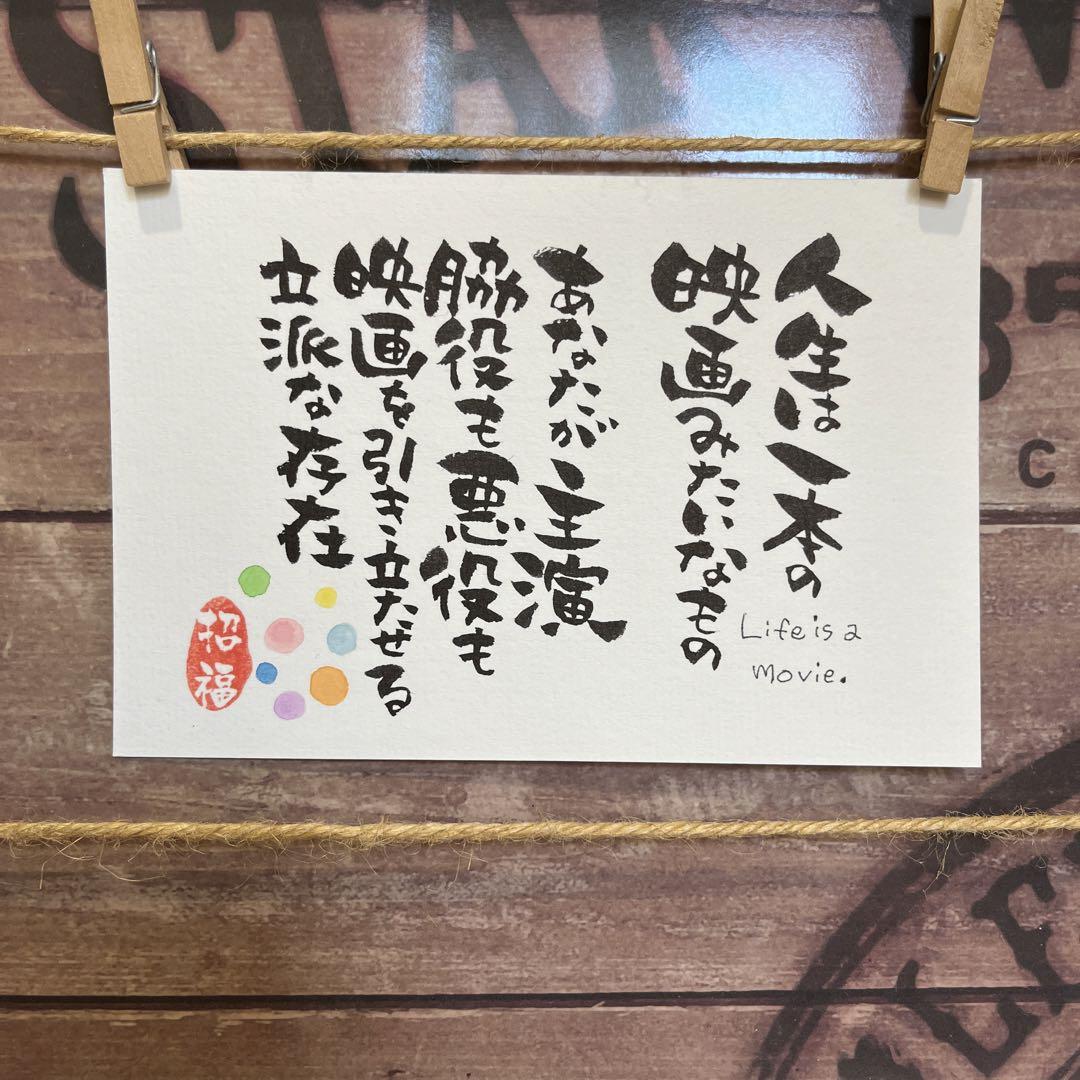 人生は一本の
映画みたいなもの
Life is a
movie.
あなたが主演
脇役も悪役も
映画を引き立たせる
立派な存在
招福